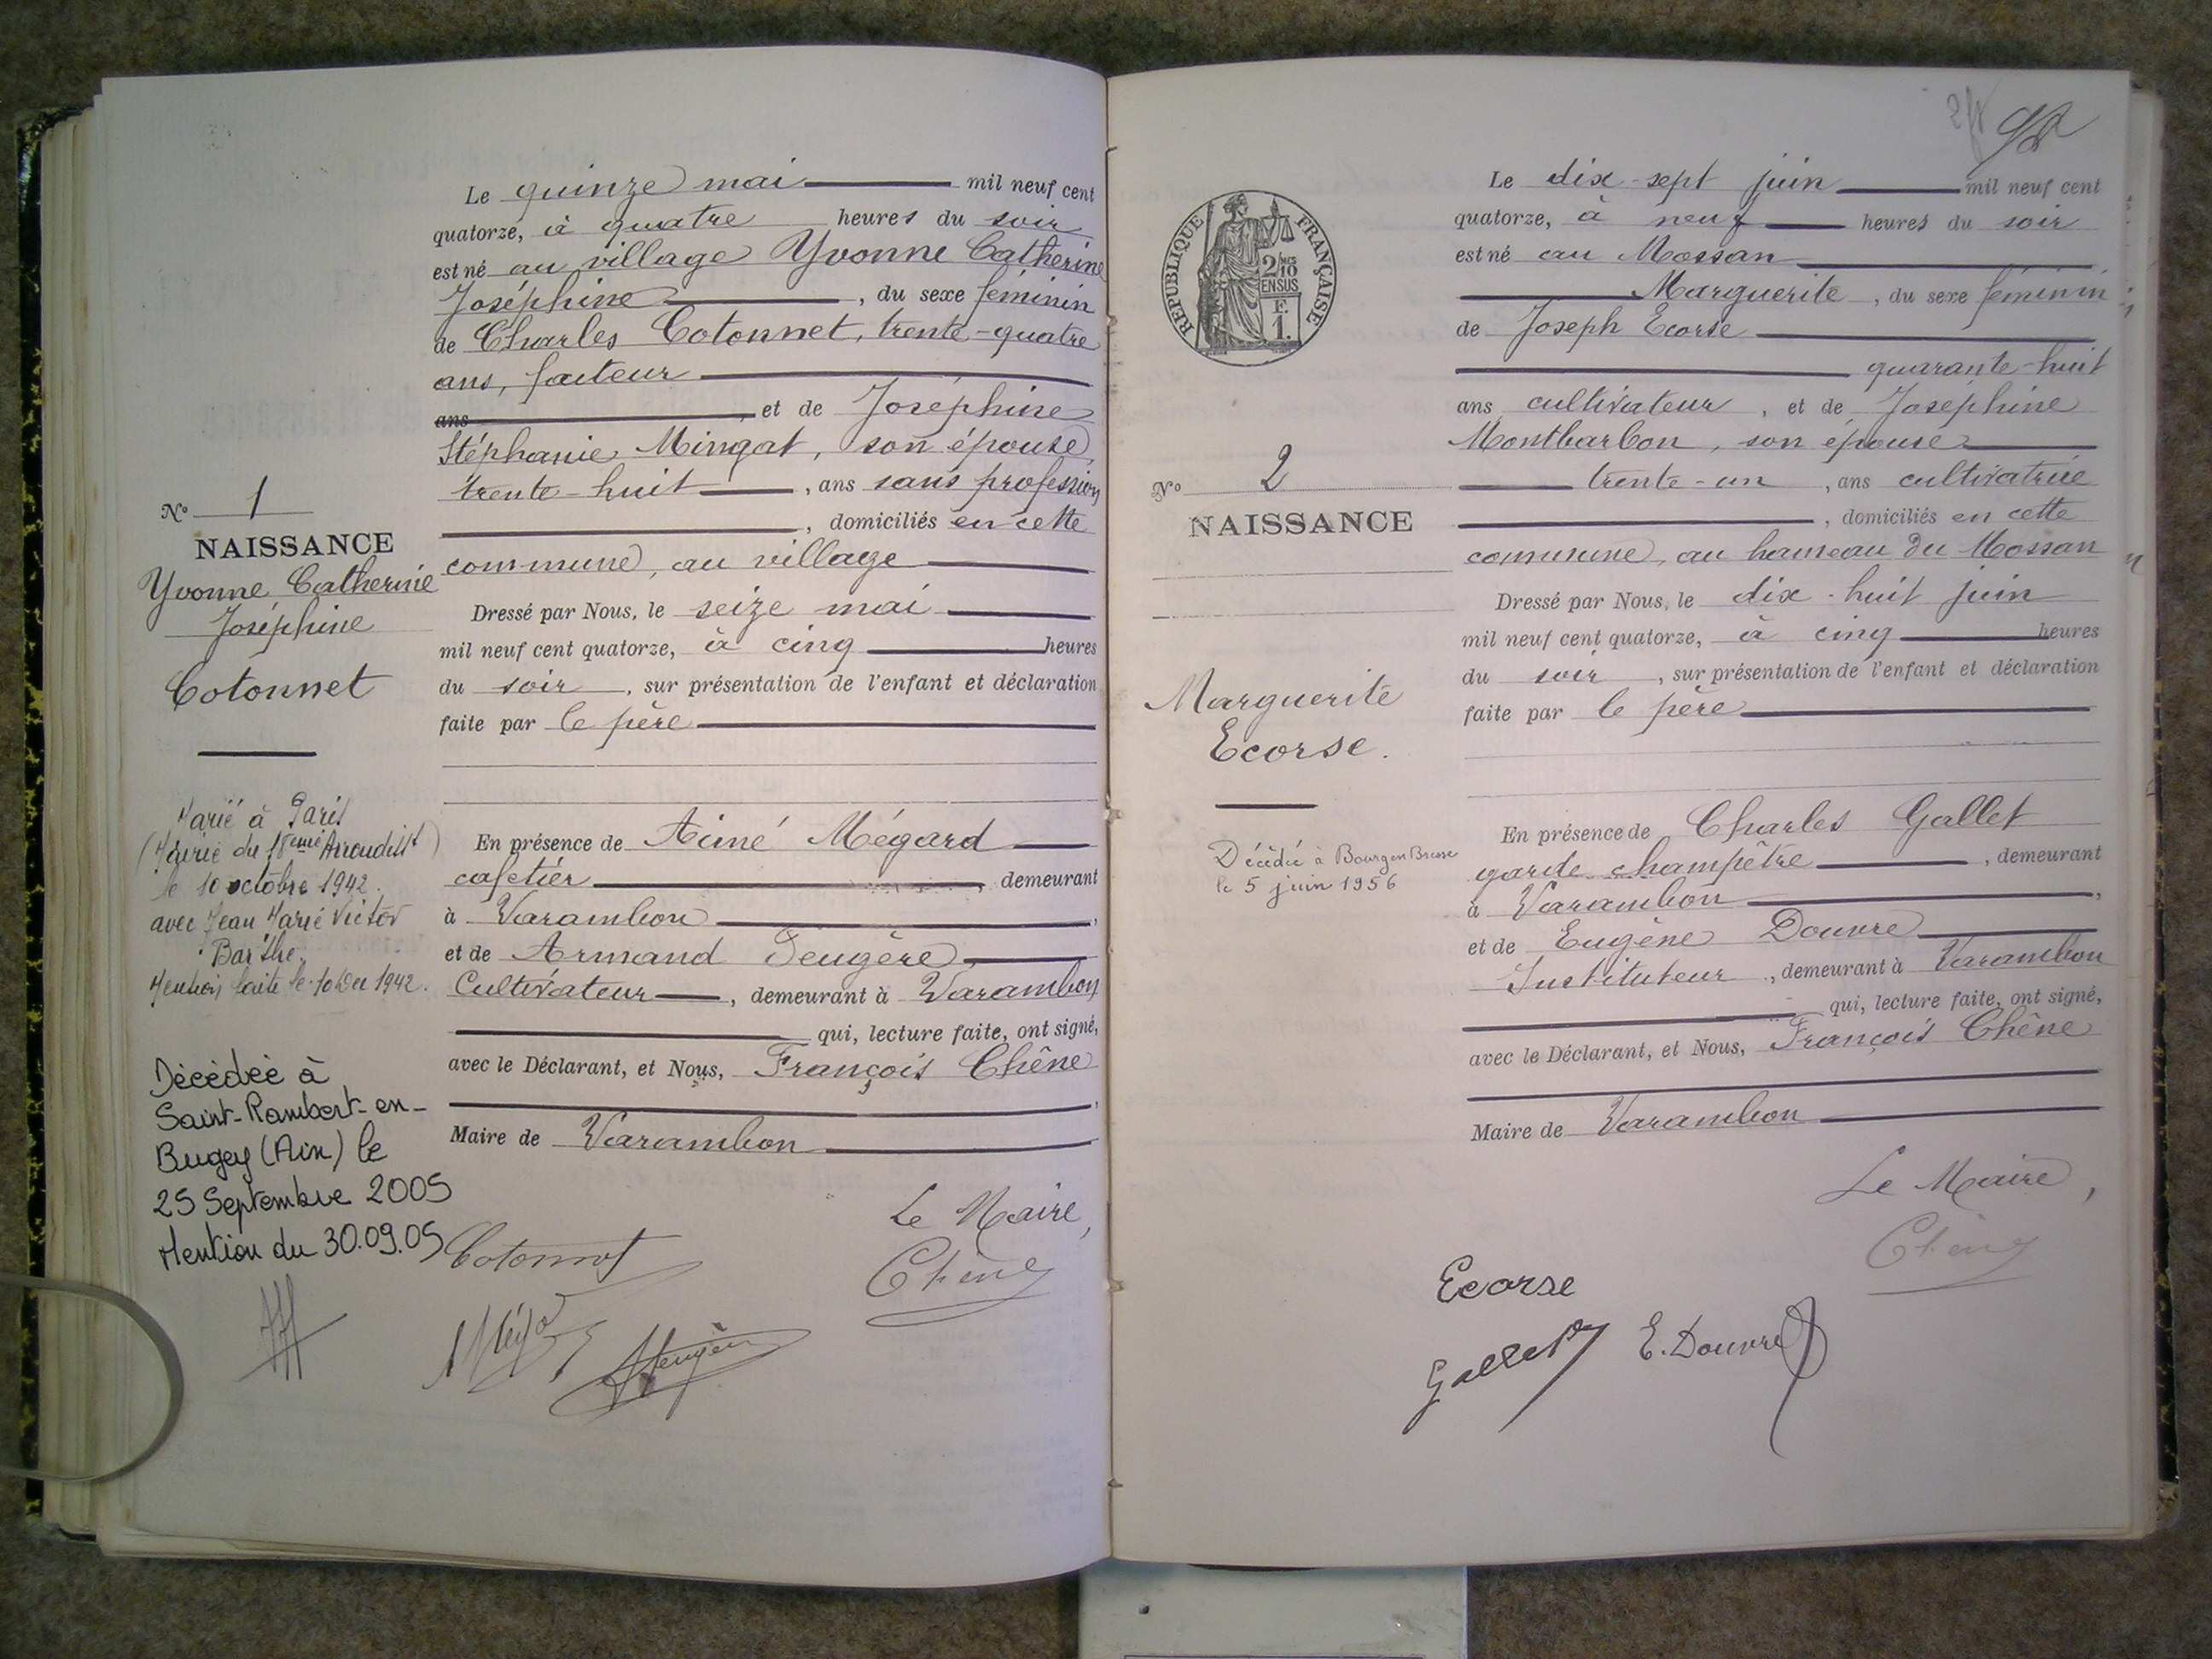 Le quinze mai mil neuf cent
quatorze, à quatre heures du soir
est né au village Yvonne Catherine
Joséphine, du sexe féminin
de Charles Cotonnet, trente-quatre
ans, facteur
ans, et de Joséphine
Stéphanie Mingat, son épouse,
trente-huit, ans sans profession
, domiciliés en cette
commune, au village
Dressé par Nous, le seize mai
mil neuf cent quatorze, à cinq heures
du soir, sur présentation de l'enfant et déclaration
faite par le père
En présence de Aimé Mégard
cafetier, demeurant
à Varambon,
et de Armand Deugère,
Cultivateur, demeurant à Varambon
qui, lecture faite, ont signé,
avec le Déclarant, et Nous, François Chêne
,
Maire de Varambon
Le Maire,
Cotonnet
Chêne
N° 1
NAISSANCE
Yvonne Catherine
Joséphine
Cotonnet
Marié à Paris
(Mairie du 18eme Arrondisst)
le 10 octobre 1942.
avec Jean Marie Victor
Barthe.
Mention faite le 10 1942.
Décédée à
Saint-Rambert-en-
Bugey (Ain) le
25 Septembre 2005
Mention du 30.09.05
Le dix-sept juin mil neuf cent
quatorze, à neuf heures du soir
est né au Mossan
Marguerite, du sexe féminin
de Joseph Ecorse
quarante-huit
ans cultivateur, et de Joséphine
Montbarbon, son épouse
trente-un, ans cultivatrice
, domiciliés en cette
commune, au hameau du Mossan
Dressé par Nous, le dix-huit juin
mil neuf cent quatorze, à cinq heures
du soir, sur présentation de l'enfant et déclaration
faite par le père
En présence de Charles Gallet
garde champêtre, demeurant
à Varambon,
et de Eugène Douvre
Instituteur, demeurant à Varambon
qui, lecture faite, ont signé,
avec le Déclarant, et Nous, François Chêne
Maire de Varambon
Le Maire,
Chêne
Ecorse
Gallet E. Douvre
REPUBLIQUE FRANÇAISE
2/10
EN SUS
F.
1.
N° 2
NAISSANCE
Marguerite
Ecorse.
Décédée à Bourg en Bresse
le 5 juin 1956